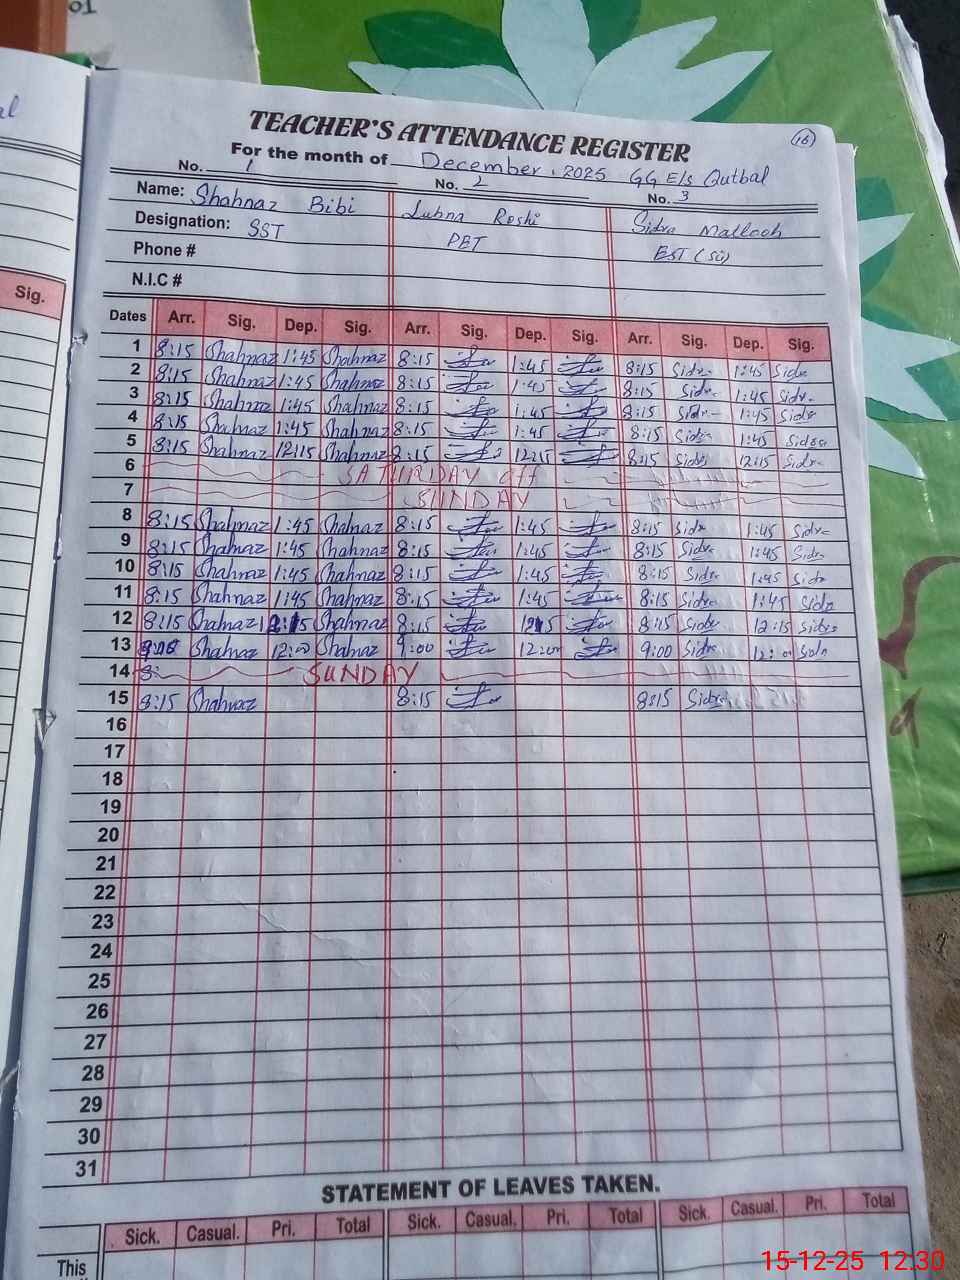 TEACHER'S ATTENDANCE REGISTER
16
For the month of December, 2025 GG E/s Qutbal
No. 1 No. 2 No. 3
Name: Shahnaz Bibi Lubna Roshi Sidra Mallooh
Designation: SST PET EST (Sci)
Phone #
N.I.C #
Sig.
Dates Arr. Sig. Dep. Sig. Arr. Sig. Dep. Sig. Arr. Sig. Dep. Sig.
1 8:15 Shahnaz 1:45 Shahnaz 8:15 1:45 8:15 Sidra 1:45 Sidra
2 8:15 Shahnaz 1:45 Shahnaz 8:15 1:45 8:15 Sidra 1:45 Sidra
3 8:15 Shahnaz 1:45 Shahnaz 8:15 1:45 8:15 Sidra 1:45 Sidra
4 8:15 Shahnaz 1:45 Shahnaz 8:15 1:45 8:15 Sidra 1:45 Sidra
5 8:15 Shahnaz 12:15 Shahnaz 8:15 12:15 8:15 Sidra 12:15 Sidra
6 SATURDAY off
7 SUNDAY
8 8:15 Shahnaz 1:45 Shahnaz 8:15 1:45 8:15 Sidra 1:45 Sidra
9 8:15 Shahnaz 1:45 Shahnaz 8:15 1:45 8:15 Sidra 1:45 Sidra
10 8:15 Shahnaz 1:45 Shahnaz 8:15 1:45 8:15 Sidra 1:45 Sidra
11 8:15 Shahnaz 1:45 Shahnaz 8:15 1:45 8:15 Sidra 1:45 Sidra
12 8:15 Shahnaz 12:15 Shahnaz 8:15 1215 8:15 Sidra 12:15 Sidra
13 9:00 Shahnaz 12:00 Shahnaz 9:00 12:00 9:00 Sidra 12:00 Sidra
14 8: SUNDAY
15 8:15 Shahnaz 8:15 8:15 Sidra
16
17
18
19
20
21
22
23
24
25
26
27
28
29
30
31
STATEMENT OF LEAVES TAKEN.
Sick. Casual. Pri. Total Sick. Casual. Pri. Total Sick. Casual. Pri. Total
This
15-12-25 12:30